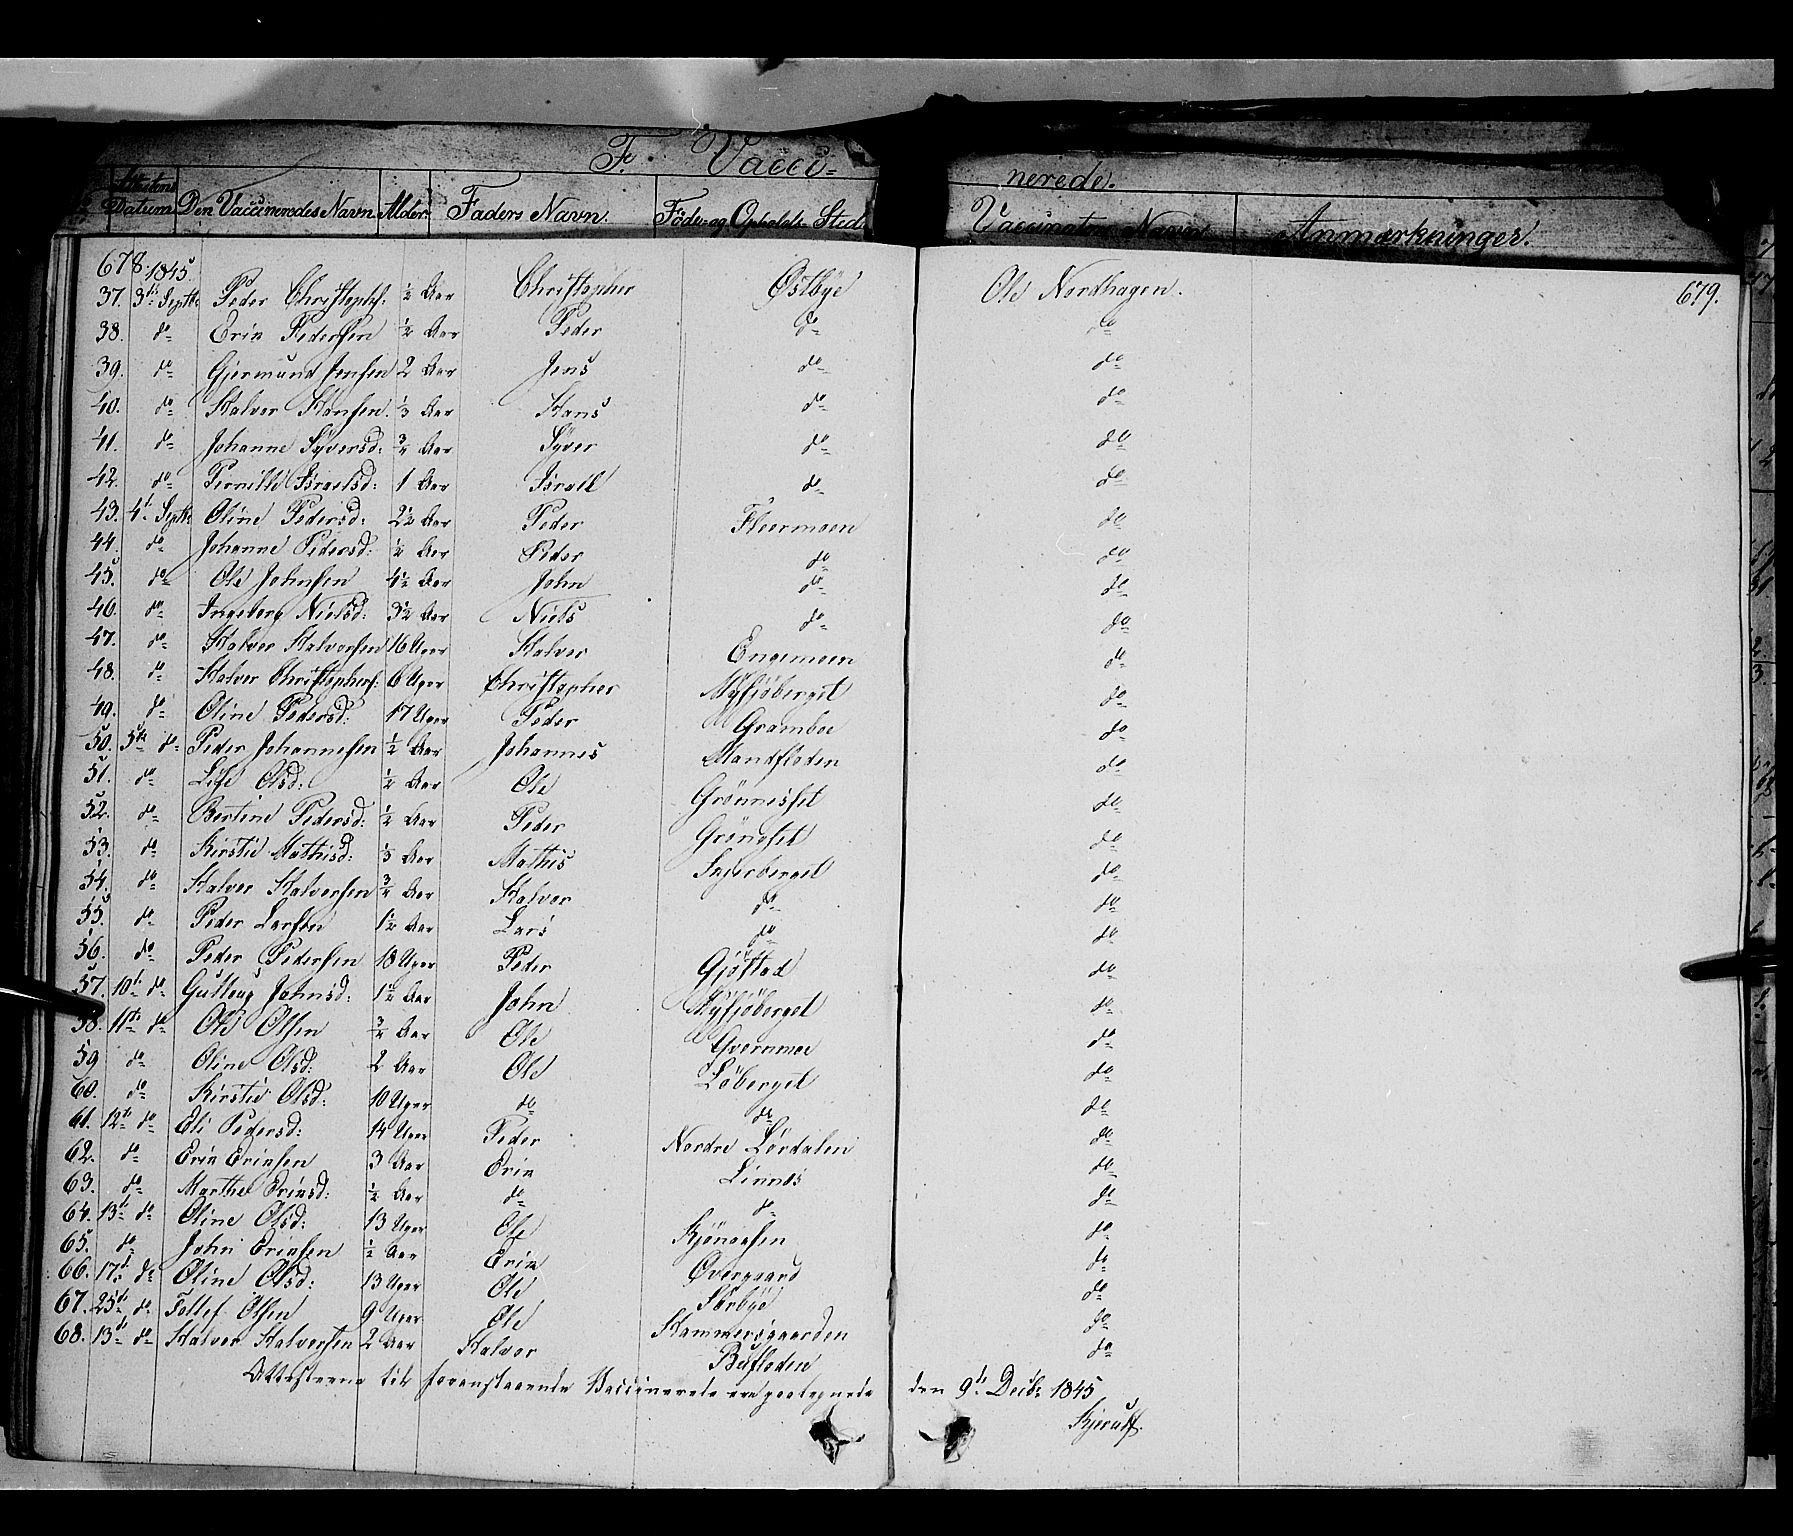 F. Vacci- nerede.
Attestens Datum Den Vaccineredes Navn Alder Faders Navn. Föde- og Opholds-Sted Vaccinators Navn Anmærkninger.
678. 1845
37. 3die Septbr Peder Christophs: ½ Aar Christopher Østbye Ole Nordhagen. 679.
38. do Erik Pedersen ½ Aar Peder do do
39. do Gjermund Jensen 2 Aar Jens do do
40. do Halvor Hansen ⅓ Aar Hans do do
41. do Johanne Syversd: ¾ Aar Syver do do
42. do Pernille Israelsd: 1 Aar Israel do do
43. 4de Septbr Oline Pedersd: 2½ Aar Peder Fleermoen do
44. do Johanne Pedersd: ½ Aar Peder do do
45. do Ole Johnsen 4½ Aar John do do
46. do Ingeborg Nielsd: 3½ Aar Niels do do
47. do Halvor Halvorsen 16 Uger Halvor Engemoen do
48. do Halvor Christophers: 6 Uger Christopher Myhjöberget do
49. do Oline Pedersd: 17 Uger Peder Gramboe do
50. 5te do Peder Johannesen ½ Aar Johannes Mandfloden do
51. do Lise Olsd: ½ Aar Ole Grönneset do
52. do Bertine Pedersd: ½ Aar Peder Gröneset do
53. do Kirstie Mathisd: ⅓ Aar Mathis do
54. do Halvor Halvorsen ¾ Aar Halvor do do
55. do Peder Larsen 1½ Aar Lars do do
56. do Peder Pedersen 18 Uger Peder Gjöstad do
57. 10de do Gulloug Johnsd: 1½ Aar John Myhjöberget do
58. 11te do Ole Olsen ¾ Aar Ole do
59 do Oline Olsd: 2 Aar Ole Löberget do
60. do Kirstie Olsd: 10 Uger do do do
61. 12te do Eli Pedersd: 14 Uger Peder Nordre Lördalen do
62. do Erik Eriksen 3 Aar Erik Linnes do
63. do Marthe Eriksd: ½ Aar do do do
64. 13de do Oline Olsd: 13 Uger Ole Kjönaasen do
65. do John Eriksen ½ Aar Erik Øvergaard do
66. 17de do Oline Olsd: 13 Uger Ole Sörbye do
67. 25de do Tollef Olsen 9 Uger Ole Hammersgaarden do
68. 13de do Halvor Halvorsen 2 Aar Halvor Bufloden do
Attesterne til foranstaaende Vaccinerede ere paategnede den 9de Decbr 1845
Kjerulf.